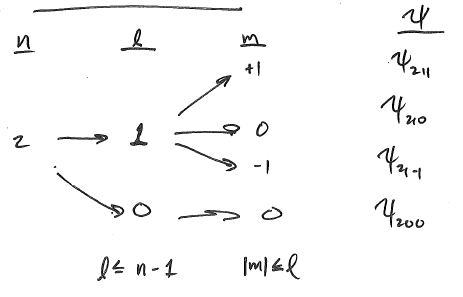 n l m ψ
+1 ψ₂₁₁
2 → 1 → 0 ψ₂₁₀
-1 ψ₂₁₋₁
0 → 0 ψ₂₀₀
l ≤ n - 1 |m| ≤ l